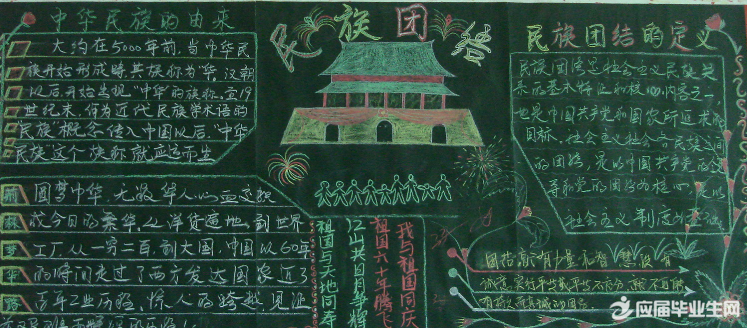 中华民族的由来
大约在5000年前,当中华民
族开始形成时,其族称为"华,汉朝
以后,开始出现"中华"的族称,至19
世纪末,作为近代民族学术语的
"民族"概念传入中国以后,"中华
民族"这个族称就应运而生
圆梦中华 无数华人的血交织
成今日的繁华,从洋货遍地,到世界
工厂从一穷二百,到大国,中国以60年
的时间走过了西方发达国家近了
百年工业历程,惊人的跨越,见证
民族团结
祖国与天地同寿
江山共日月争辉
祖国六十年腾飞
我与祖国同庆
民族团结的定义
民族团结是社会主义民族关
系的基本特征和核心内容之一
也是中国共产党和国家所追求的
目标,社会主义社会各民族之间
的团结,是以中国共产党的
领导和党的团结为核心,是以
社会主义制度为
应届毕业生网
YJBYS.COM